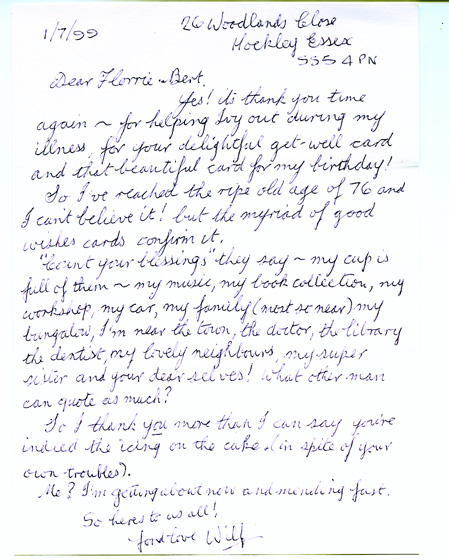 1/7/99
26 Woodlands Close
Hockley Essex
SS5 4PN
Dear Florrie & Bert,
Yes! it's thank you time
again ~ for helping Ivy out during my
illness, for your delightful get-well card
and that beautiful card for my birthday!
So I've reached the ripe old age of 76 and
I can't believe it! but the myriad of good
wishes cards confirm it.
"Count your blessings" they say ~ my cup is
full of them ~ my music, my book collection, my
workshop, my car, my family (most so near) my
bungalow, I'm near the town, the doctor, the library
the dentist, my lovely neighbours, my super
sister and your dear selves! What other man
can quote as much?
So I thank you more than I can say you're
indeed the 'icing on the cake. (in spite of your
own troubles).
Me? I'm getting about now and mending fast.
So here's to us all!
fond love Wilf